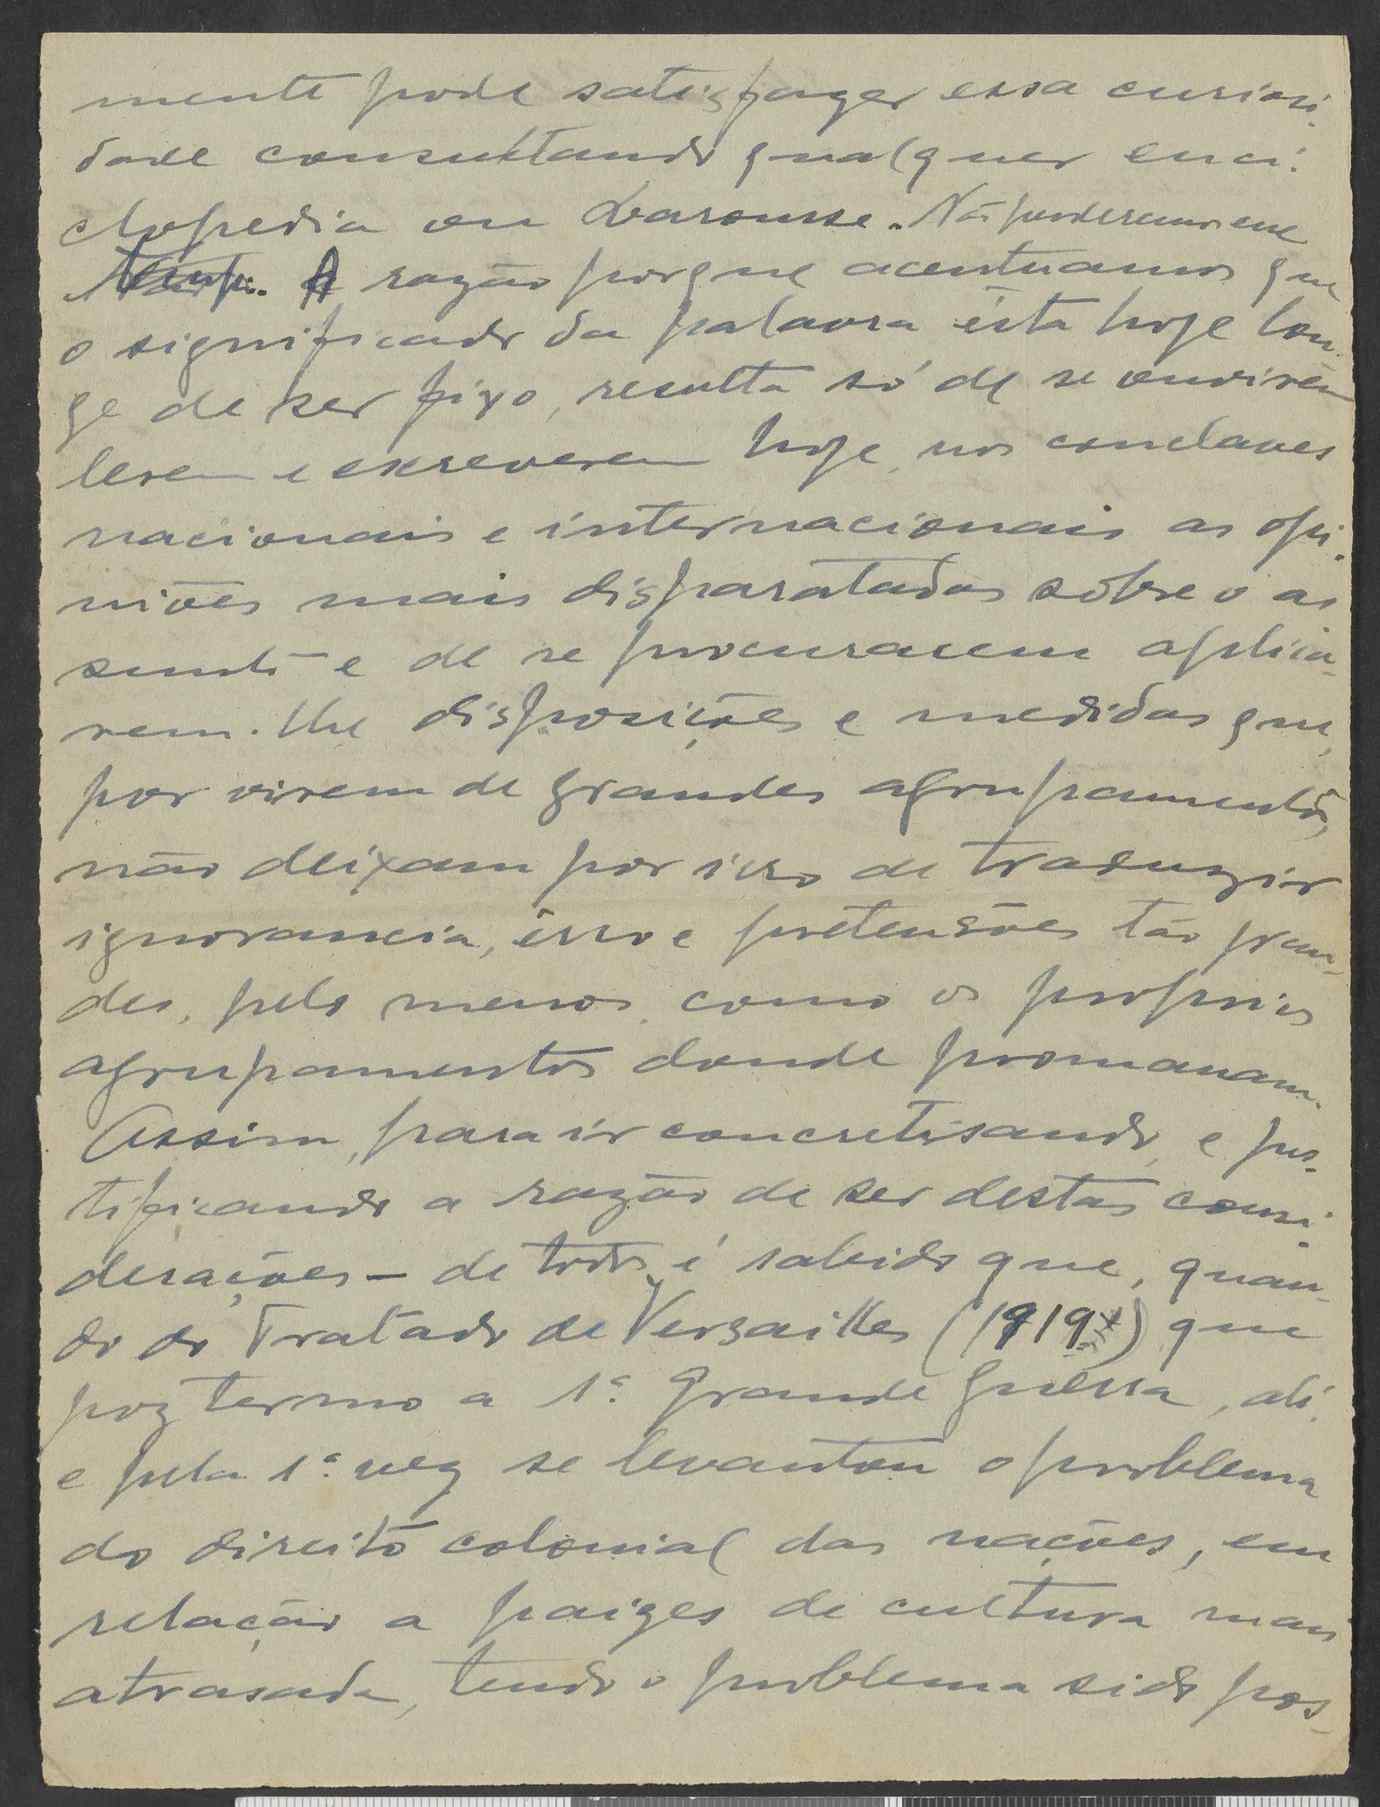 mente pode satisfazer essa curiosi-
dade consultando qualquer enci-
clopedia ou Larousse. Não perderemos esse
tempo. A razão porque acentuamos que
o significado da palavra ésta hoje lon-
ge de ser fixo, resulta só de se ouvirem
lerem e escreverem hoje, nos conclaves
nacionais e internacionais as opi-
niões mais disparatadas sôbre o as
sunto e de se procurarem aplica-
rem-lhe disposições e medidas que,
por virem de grandes agrupamentos,
não deixam por isso de traduzir
ignorancia, êrro e pretensões tão gran-
des, pelo menos, como os proprios
agrupamentos donde promanam.
Assim, para ir concretisando, e jus-
tificando a razão de ser destas consi-
derações — de todos é sabido que, quan-
do do Tratado de Versailles (1919) que
poz termo a 1ª Grande Guerra, ali
e pela 1ª vez se levantou o problema
do direito colonial das nações, em
relação a paizes de cultura mais
atrasada, tendo o problema sido pos-